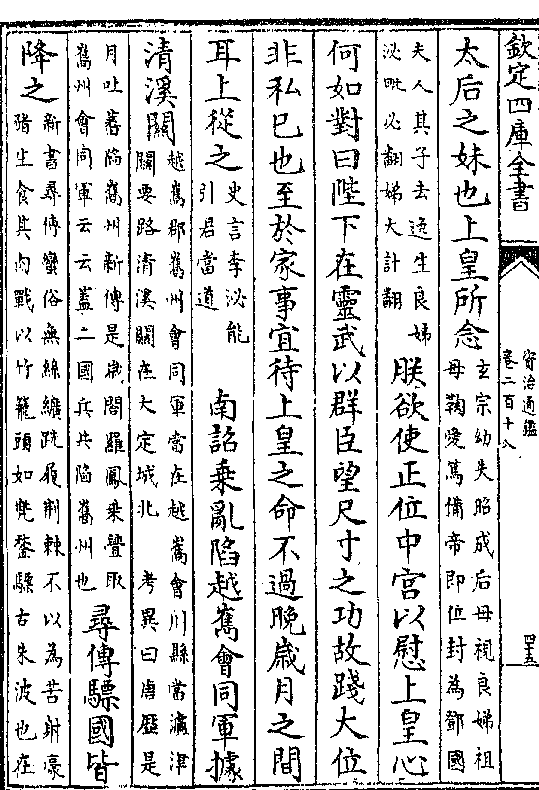 欽定四庫全書
資治通鑑
卷二百十八
四十五
太后之妹也上皇所念
玄宗幼失昭成后母視良娣祖
母鞠愛篤備帝即位封為鄧國
夫人其子去逸生良娣
泌毗必翻娣大計翻
朕欲使正位中宮以慰上皇心
何如對曰陛下在靈武以群臣望尺寸之功故踐大位
非私已也至於家事宜待上皇之命不過晚歲月之間
耳上從之
史言李泌能
引君當道
南詔乘亂陷越嶲會同軍據
清溪關
越嶲郡嶲州會同軍當在越嶲會川縣當瀘津
關要路清溪關在大定城北 考異曰唐歴是
月吐蕃陷嶲州新傳是歲閤羅鳳乘釁取
嶲州會同軍云云蓋二國兵共陷嶲州也
尋傳驃國皆
降之
新書尋傳蠻俗無絲纊跣履荆棘不以為苦射豪
猪生食其肉戰以竹籠頭如兜鍪驃古朱波也在